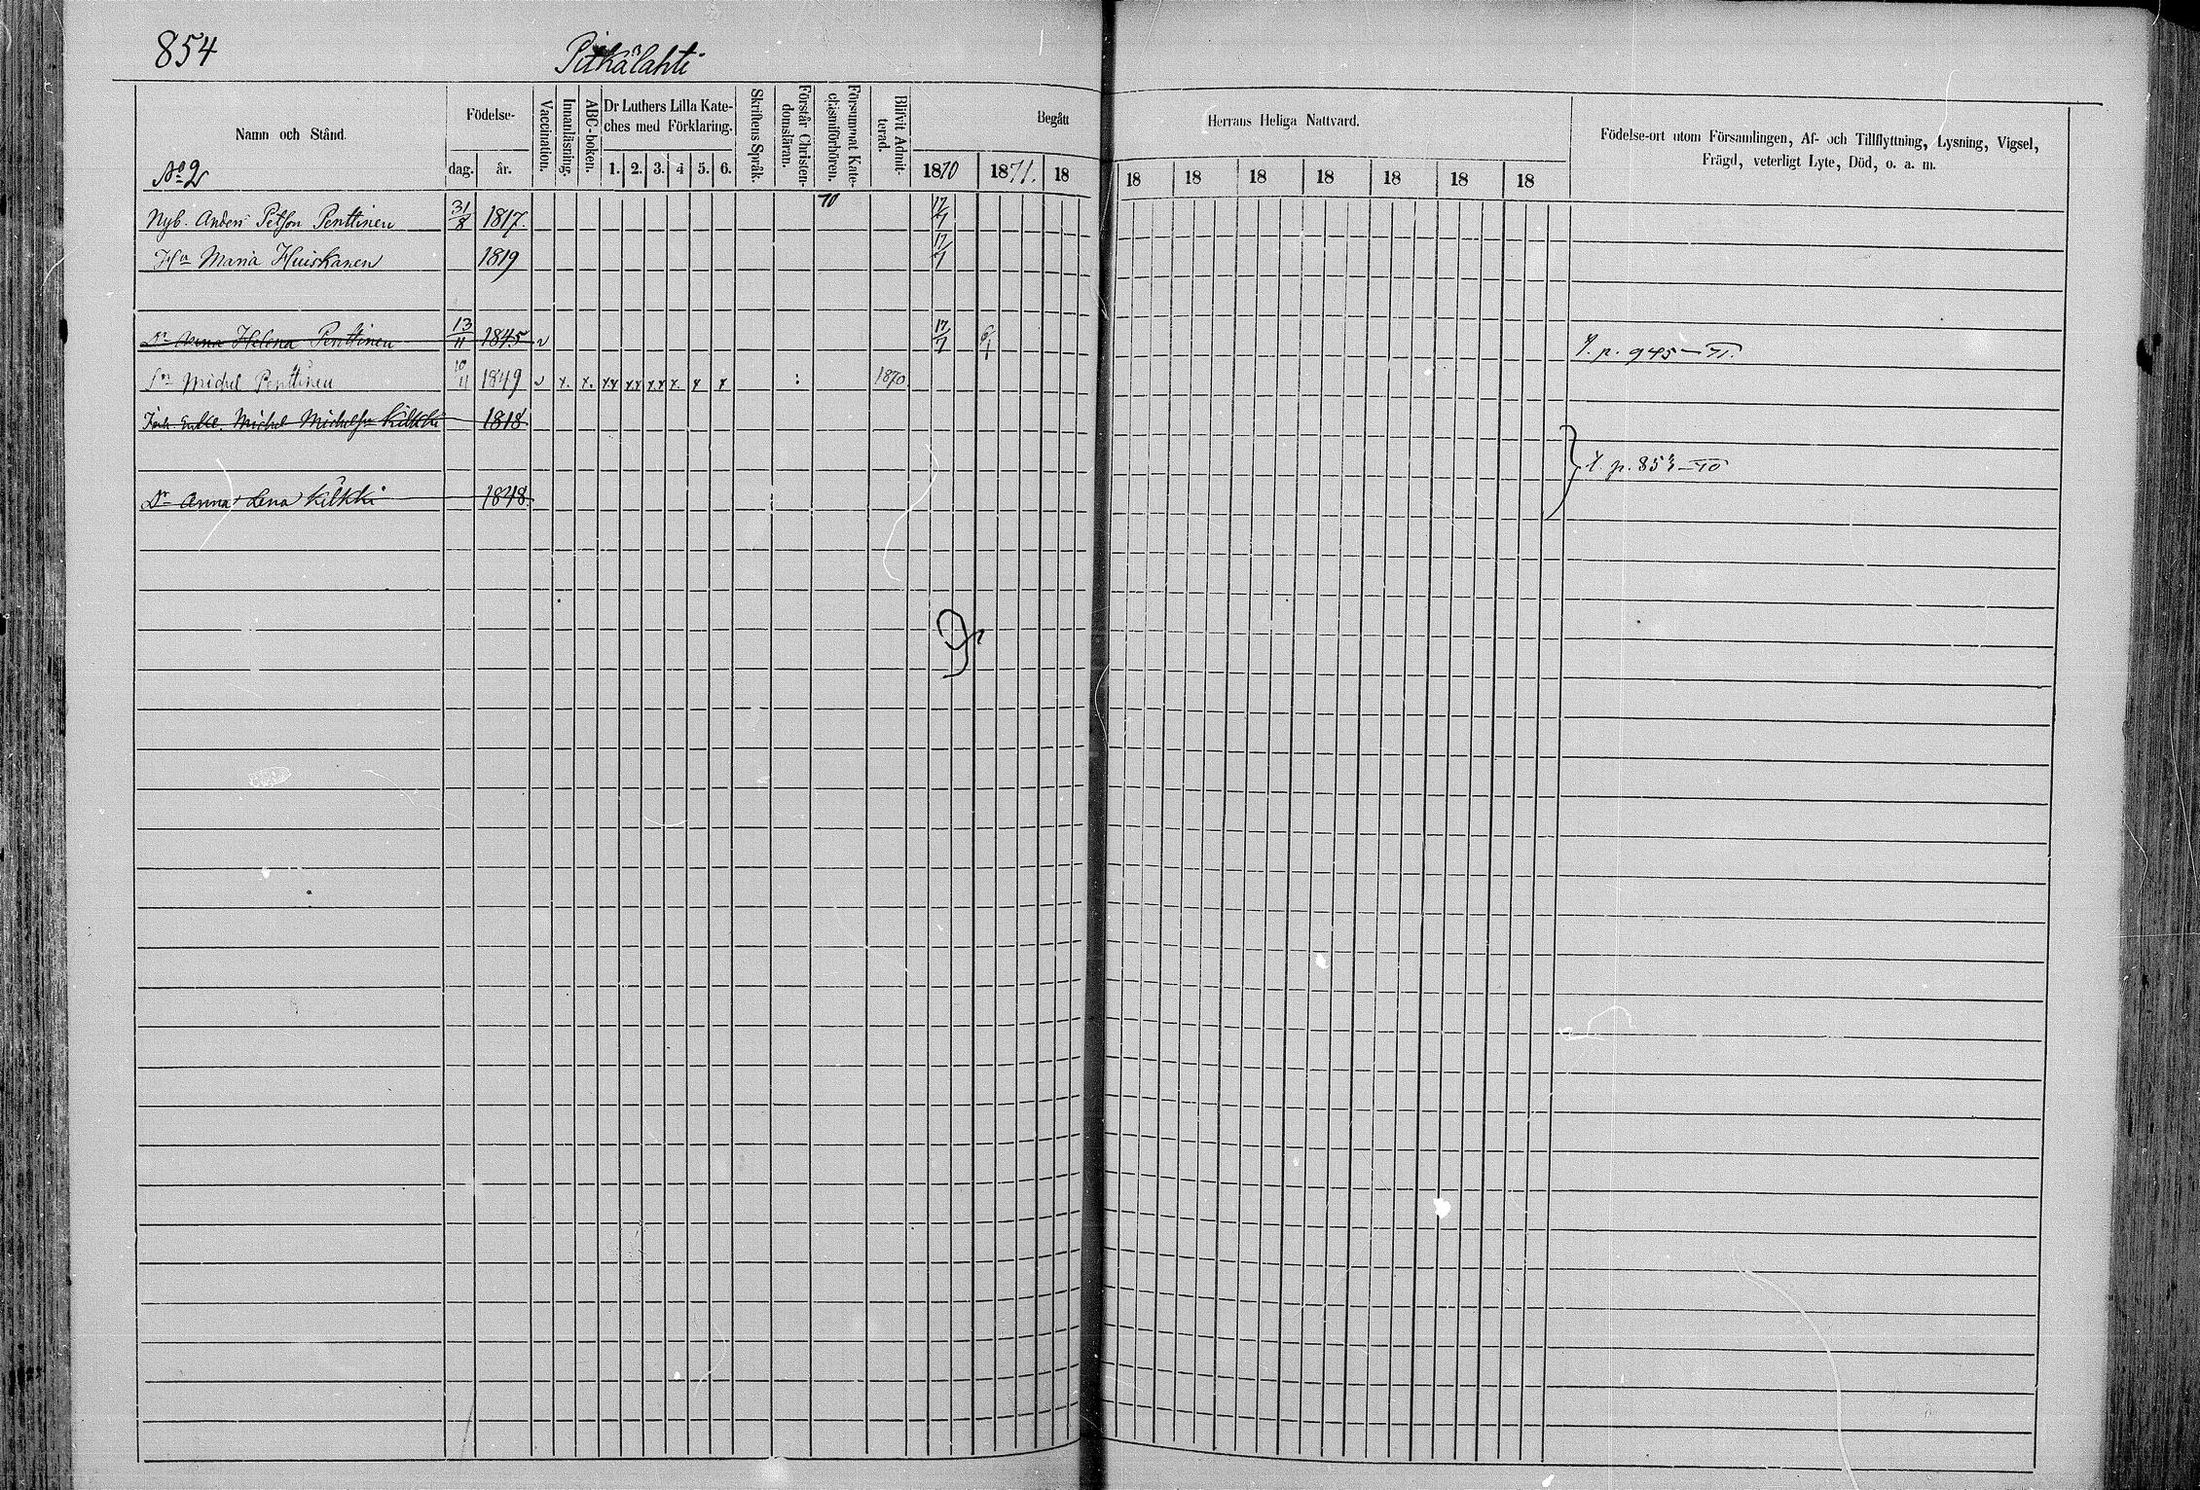 854
Pitkälahti
Namn och Stånd.
No 2
Födelse-
dag.
år.
Vaccination.
Innanläsning.
ABC-boken.
Dr Luthers Lilla Kate-
ches med Förklaring.
1. 2. 3. 4 5. 6.
Skriftens Språk.
Förstår Christen-
domsläran.
Försummat Kate-
chismiförhören.
Blifvit Admit-
terad.
Begått
Herrans Heliga Nattvard.
1870 1871. 18 18 18 18 18 18 18 18
Födelse-ort utom Församlingen, Af- och Tillflyttning, Lysning, Vigsel,
Frägd, veterligt Lyte, Död, o. a. m.
70
Nyb. Anders Petson Penttinen 31/8 1817. 17/7
Hu Maria Huiskanen 1819 17/7
Dr Anna Helena Penttinen 13/11 1845 v 17/7 6/1 p. 945-71.
Sn Michel Penttinen 10/11 1849 v x. x. xx xx xx x. x x 1870.
Michel Michelsn Kilkki 1818
p. 853-70
Dr Anna Lena Kilkki 1848.